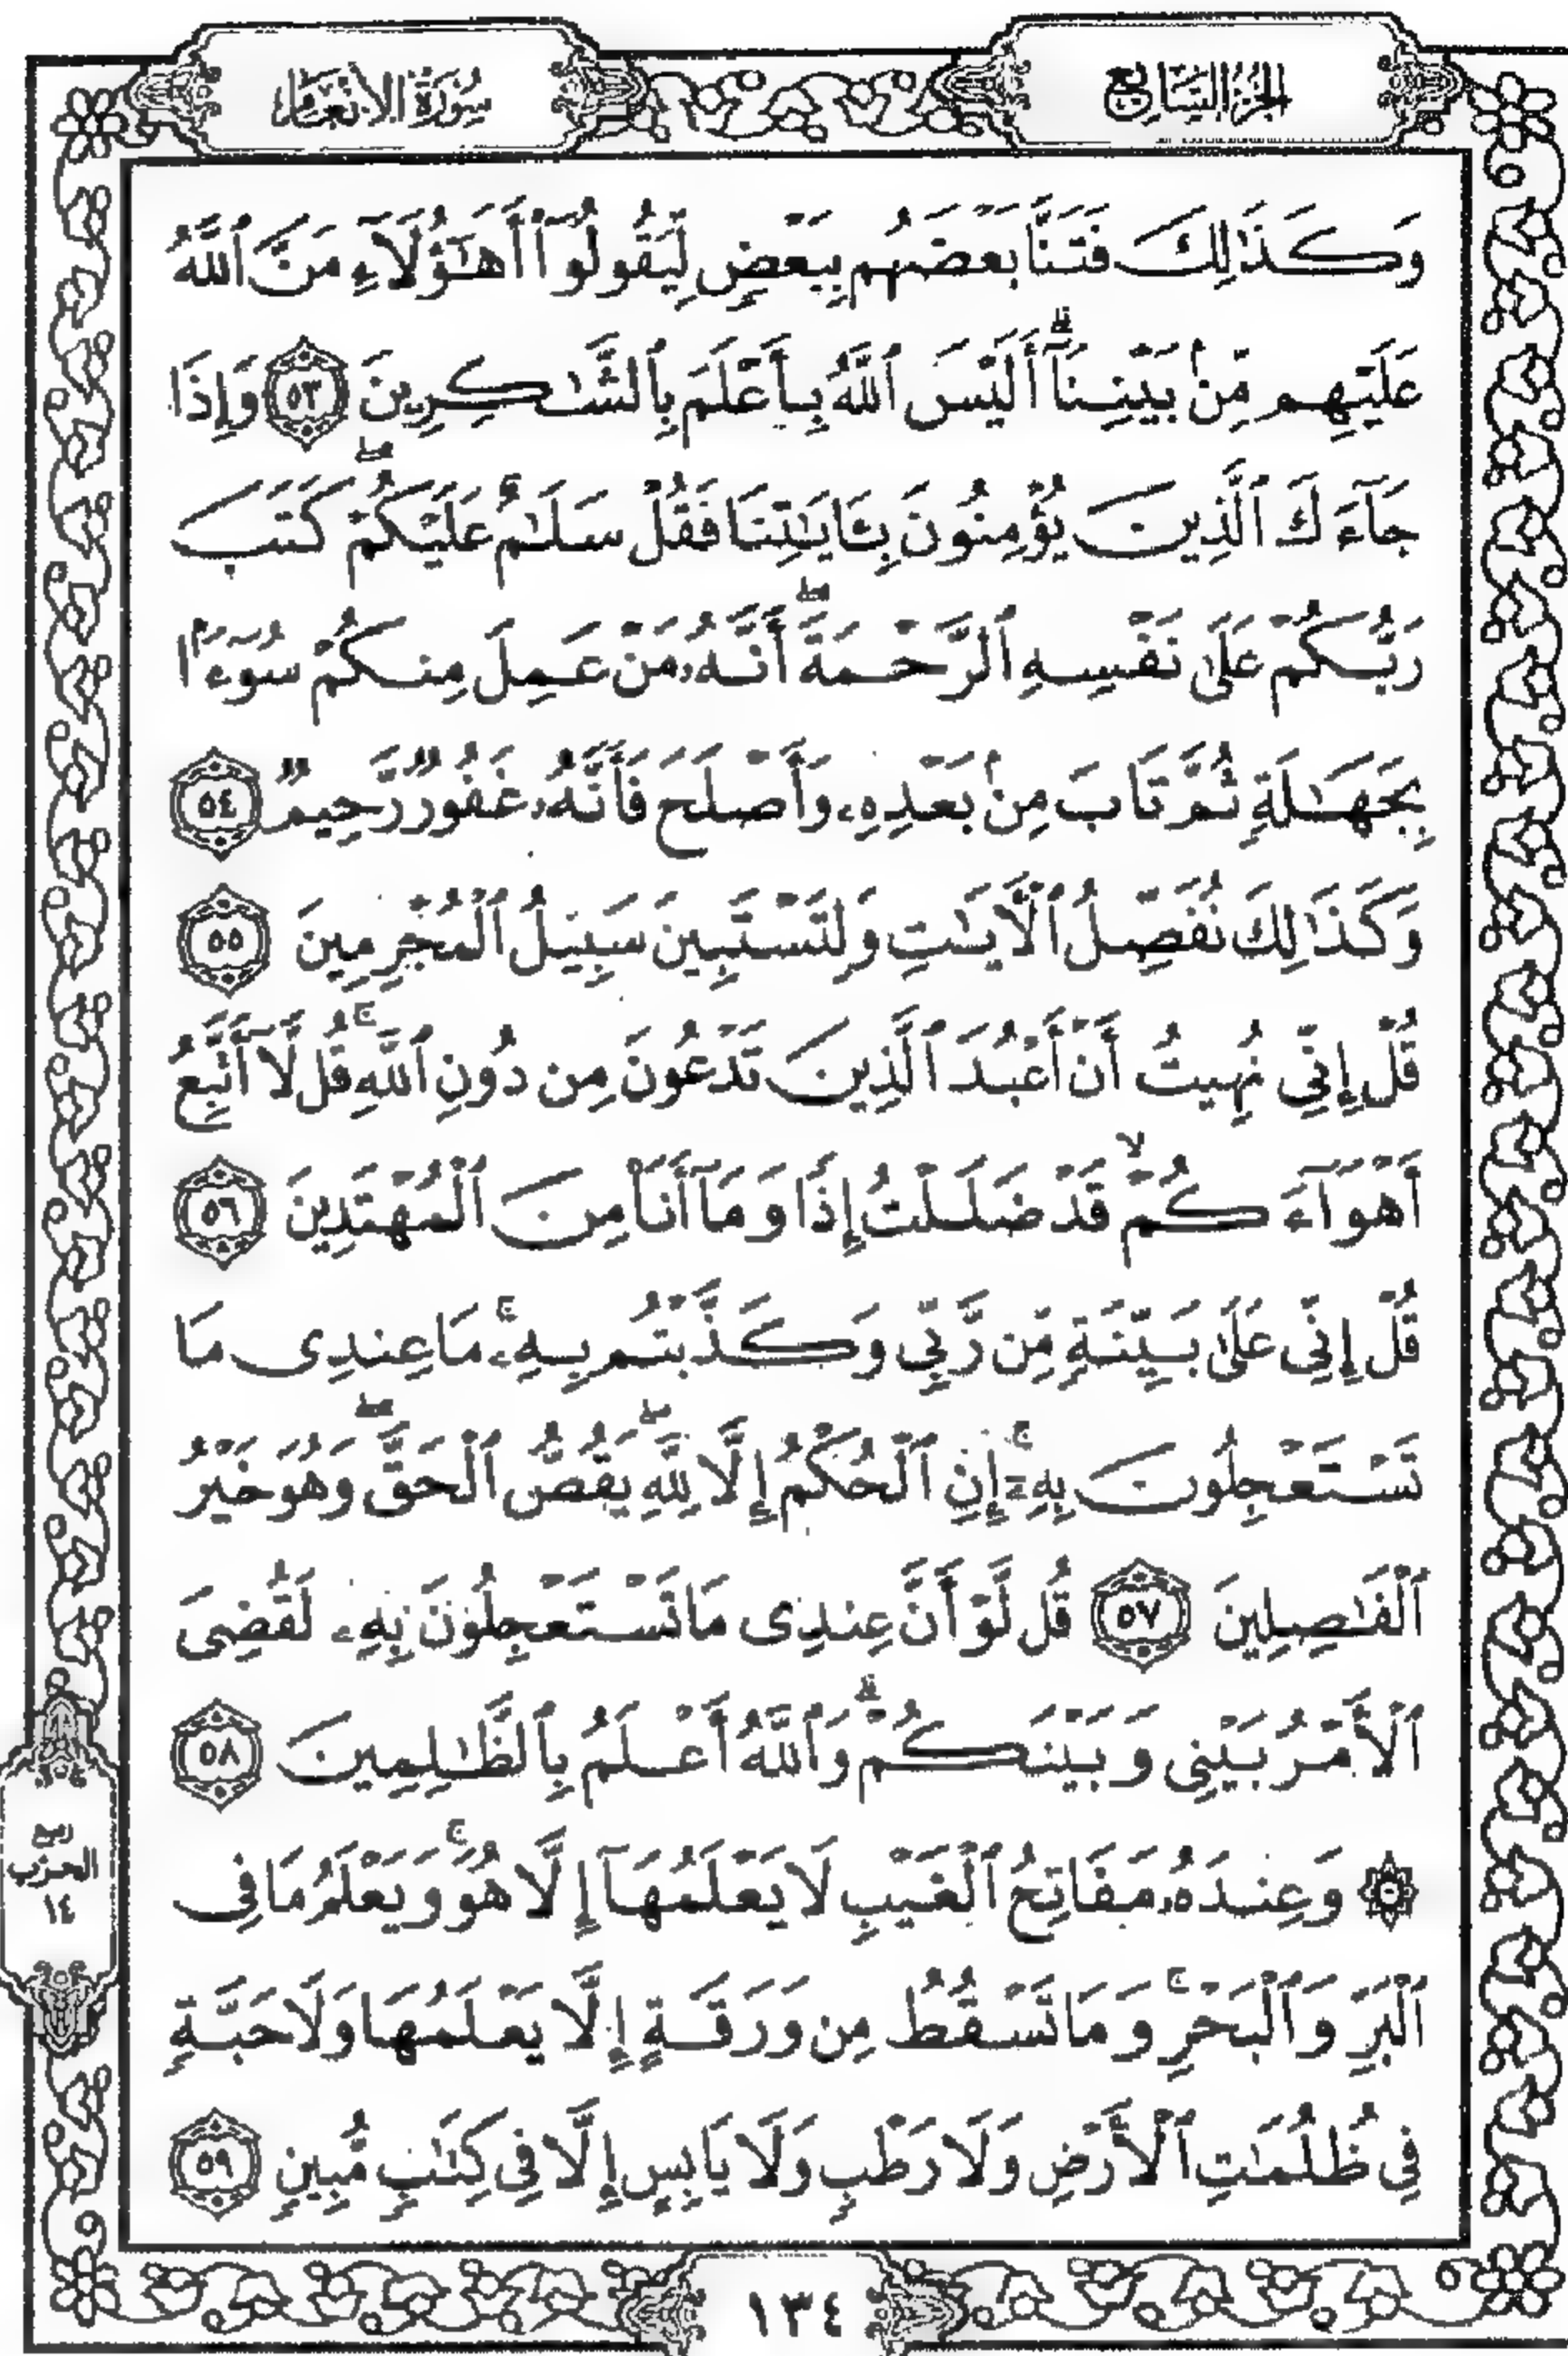 الجزء السابع
سورة الأنعام
وَكَذَٰلِكَ فَتَنَّا بَعْضَهُم بِبَعْضٍ لِّيَقُولُوٓا۟ أَهَـٰٓؤُلَآءِ مَنَّ ٱللَّهُ
عَلَيْهِم مِّنۢ بَيْنِنَآ ۗ أَلَيْسَ ٱللَّهُ بِأَعْلَمَ بِٱلشَّـٰكِرِينَ ٥٣ وَإِذَا
جَآءَكَ ٱلَّذِينَ يُؤْمِنُونَ بِـَٔايَـٰتِنَا فَقُلْ سَلَـٰمٌ عَلَيْكُمْ ۖ كَتَبَ
رَبُّكُمْ عَلَىٰ نَفْسِهِ ٱلرَّحْمَةَ ۖ أَنَّهُۥ مَنْ عَمِلَ مِنكُمْ سُوٓءًۢا
بِجَهَـٰلَةٍ ثُمَّ تَابَ مِنۢ بَعْدِهِۦ وَأَصْلَحَ فَأَنَّهُۥ غَفُورٌ رَّحِيمٌ ٥٤
وَكَذَٰلِكَ نُفَصِّلُ ٱلْـَٔايَـٰتِ وَلِتَسْتَبِينَ سَبِيلُ ٱلْمُجْرِمِينَ ٥٥
قُلْ إِنِّى نُهِيتُ أَنْ أَعْبُدَ ٱلَّذِينَ تَدْعُونَ مِن دُونِ ٱللَّهِ ۚ قُل لَّآ أَتَّبِعُ
أَهْوَآءَكُمْ ۙ قَدْ ضَلَلْتُ إِذًا وَمَآ أَنَا۠ مِنَ ٱلْمُهْتَدِينَ ٥٦
قُلْ إِنِّى عَلَىٰ بَيِّنَةٍ مِّن رَّبِّى وَكَذَّبْتُم بِهِۦ ۚ مَا عِندِى مَا
تَسْتَعْجِلُونَ بِهِۦٓ ۚ إِنِ ٱلْحُكْمُ إِلَّا لِلَّهِ ۖ يَقُصُّ ٱلْحَقَّ ۖ وَهُوَ خَيْرُ
ٱلْفَـٰصِلِينَ ٥٧ قُل لَّوْ أَنَّ عِندِى مَا تَسْتَعْجِلُونَ بِهِۦ لَقُضِىَ
ٱلْأَمْرُ بَيْنِى وَبَيْنَكُمْ ۗ وَٱللَّهُ أَعْلَمُ بِٱلظَّـٰلِمِينَ ٥٨
۞ وَعِندَهُۥ مَفَاتِحُ ٱلْغَيْبِ لَا يَعْلَمُهَآ إِلَّا هُوَ ۚ وَيَعْلَمُ مَا فِى
ٱلْبَرِّ وَٱلْبَحْرِ ۚ وَمَا تَسْقُطُ مِن وَرَقَةٍ إِلَّا يَعْلَمُهَا وَلَا حَبَّةٍ
فِى ظُلُمَـٰتِ ٱلْأَرْضِ وَلَا رَطْبٍ وَلَا يَابِسٍ إِلَّا فِى كِتَـٰبٍ مُّبِينٍ ٥٩
ربع
الحزب
١٤
١٣٤